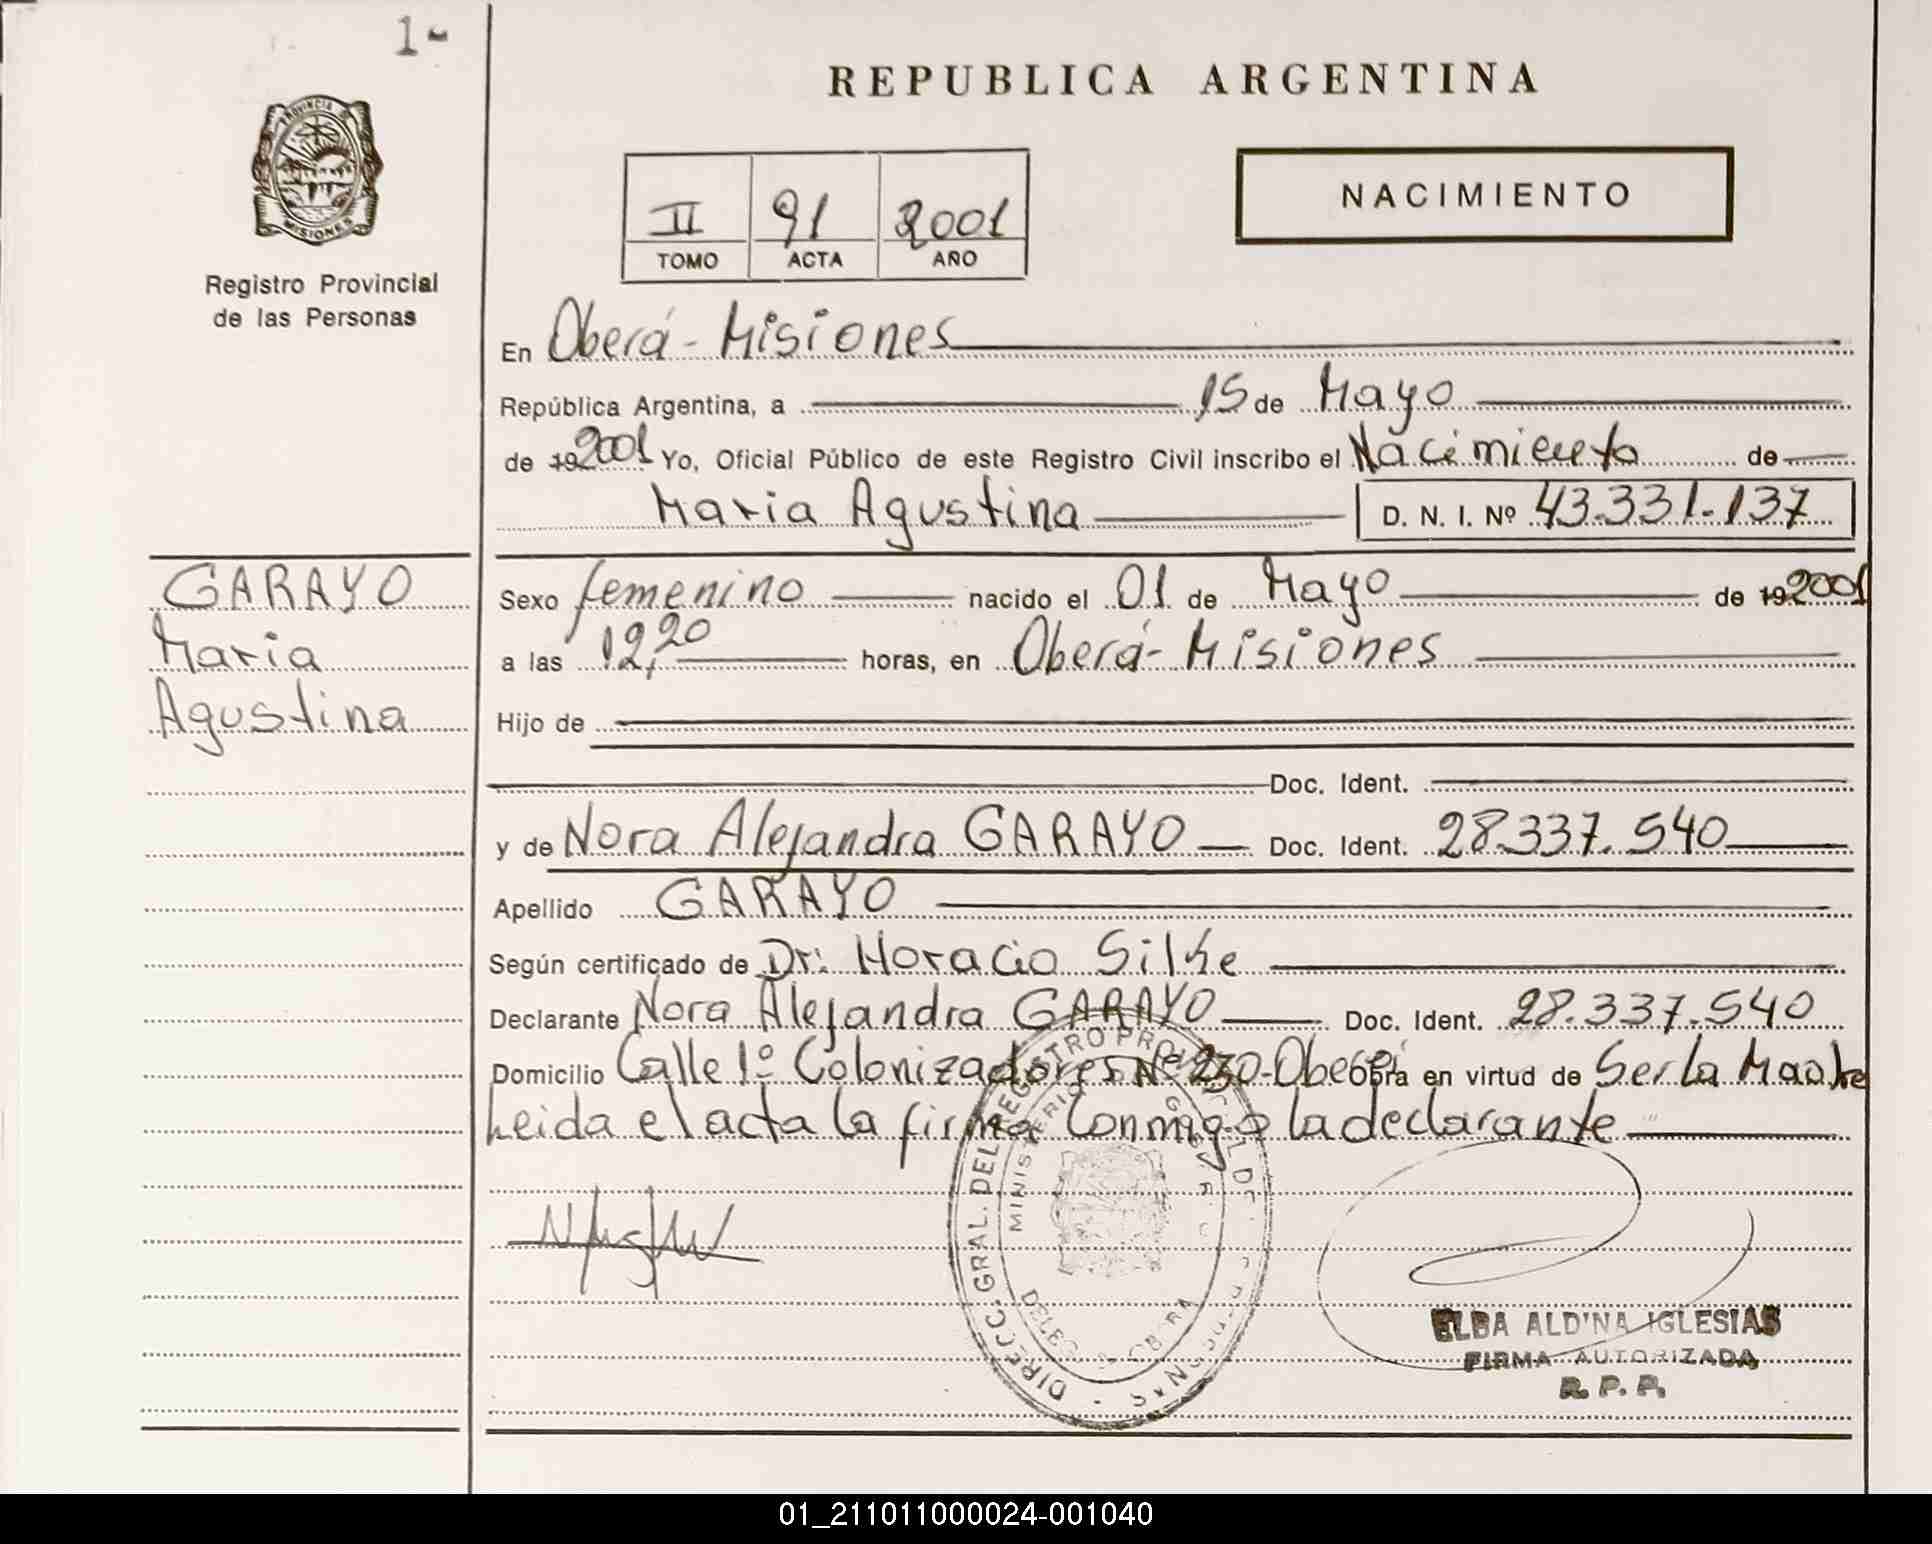 1-
REPUBLICA ARGENTINA
PROVINCIA DE
MISIONES
Registro Provincial
de las Personas
NACIMIENTO
II 91 2001
TOMO ACTA AÑO
En Oberá - Misiones
República Argentina, a 15 de Mayo
de 192001 Yo, Oficial Público de este Registro Civil inscribo el Nacimiento de
Maria Agustina D. N. I. Nº 43.331.137
GARAYO
Maria
Agustina
Sexo femenino nacido el 01 de Mayo de 192001
a las 12,20 horas, en Oberá - Misiones
Hijo de
Doc. Ident.
y de Nora Alejandra GARAYO Doc. Ident. 28.337.540
Apellido GARAYO
Según certificado de Dr: Horacio
Declarante Nora Alejandra GARAYO Doc. Ident. 28.337.540
Domicilio Calle 1º Colonizadores Nº 230 - Oberá Obra en virtud de Ser la Madre
Leida el acta la firma Conmigo la declarante
DIRECC. GRAL. DEL REGISTRO
MINISTERIO
ELBA ALDINA IGLESIAS
FIRMA AUTORIZADA
R. P. P.
01_211011000024-001040